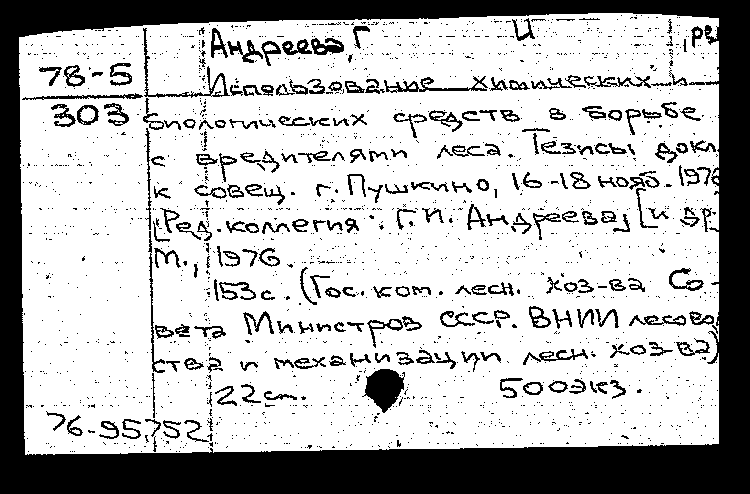 Андреева, Г И , ред
78-5 Использование химических и
303 биологических средств в борьбе
с вредителями леса. Тезисы докл.
к совещ. г. Пушкино, 16-18 нояб. 1976
[Ред. коллегия: Г.И. Андреева] [и др.
М., 1976.
153с. (Гос. ком. лесн. хоз-ва Со-
вета Министров СССР. ВНИИ лесовод
ства и механизации лесн. хоз-ва)
22см. 500экз.
76-95752